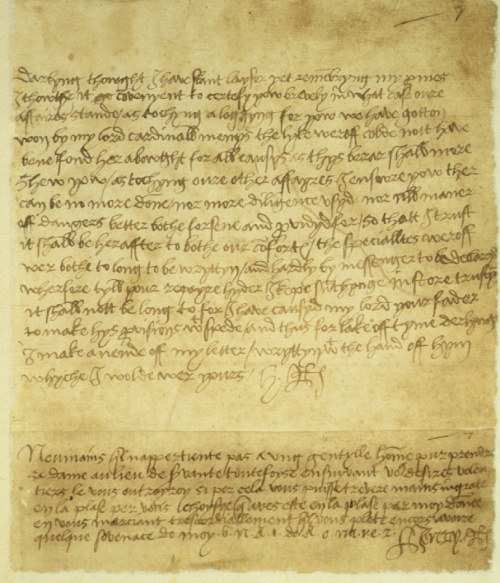 Darlyng thowght I have skant laysor yet remembryng my promes
I thowthe it convenient to certefy yow brevely in what case oure
affaires stande as tochyng a loggyng for yow we have gotton
won by my lord cardinalls menys the lyke weroff colde nott have
bene fond her abowght for all causys as thys berar shall more
shew yow as tochyng oure other affayres I ensure yow ther
can be no more done nor more diligence usyd nor all maner
off dangers better bothe forsene and provydyd for so thatt I trust
it shalbe heraffter to bothe our comforts the specialltes weroff
wer bothe to long to be wryttyn and hardly by messenger to be declaryd
wherfore tyll your repayre hydder I kepe sumthynge in store trustyng
it shall nott be long to for I have causyd my lord your fader
to make hys provisions with spede and thus for lake off tyme derlyng
I make an ende off my letter wryttyn with the hand off hym
whyche I wolde wer yours H Rx
Neumains n'appertiente pas a ung gentylle home pur prendre
sa dame au lieu de servante toutefoise ensuivant vo desires volen
tiers le vous outroyroy si per cela vous puisse trovere mains ingrate
en la plase per vous
en vous merciant tres cordiallement
quelque sovenance de moy
Henry Rx